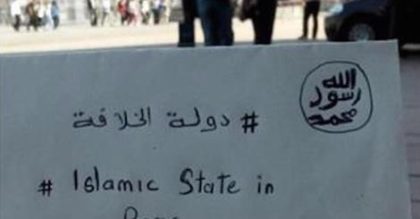 الله
رسول
محمد
# دولة الخلافة
# Islamic State in